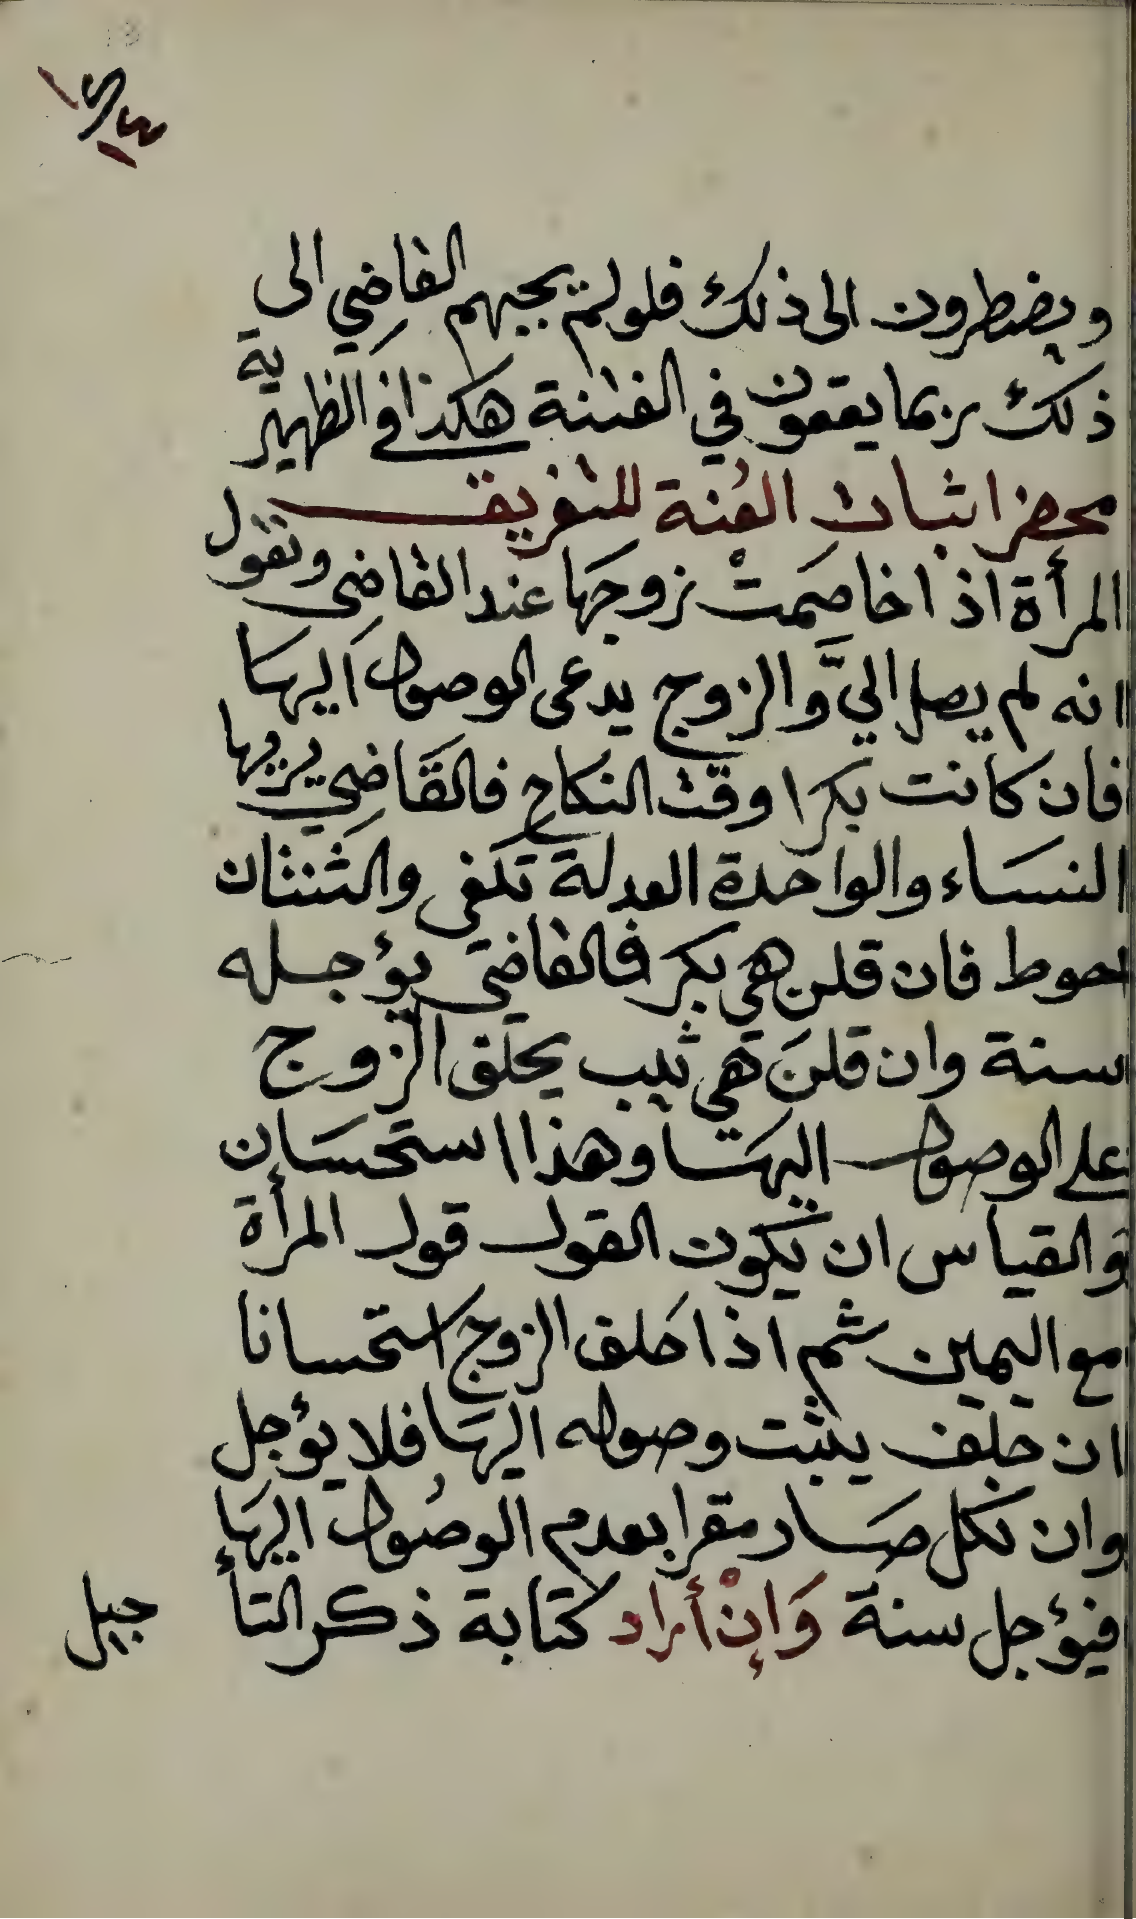 ويضطرون الى ذلك فلو لم يجبهم القاضي الى
ذلك ربما يقعون في الفتنة هكذا في الظهيرية
محضر اثبات العُنة للتفريق
المرأة اذا خاصَمتْ زوجها عند القاضى وتقول
انه لم يصل اليَّ والزوج يدعى الوصول اليها
فان كانت بكرا وقت النكاح فالقاضي يريها
النساء والواحدة العدلة تكفى والثنتان
احوط فان قلن هي بكر فالقاضى يؤجله
سنة وان قلن هي ثيب يحلف الزوج
على الوصول اليها وهذا استحسان
والقياس ان يكون القول قول المرأة
مع اليمين ثم اذا حلف الزوج استحسانا
ان حلف يثبت وصوله اليها فلا يؤجل
وان نكل صار مقرا بعدم الوصُول اليها
فيؤجل سنة وَإنْ أراد كتابة ذكر التأ
جيل